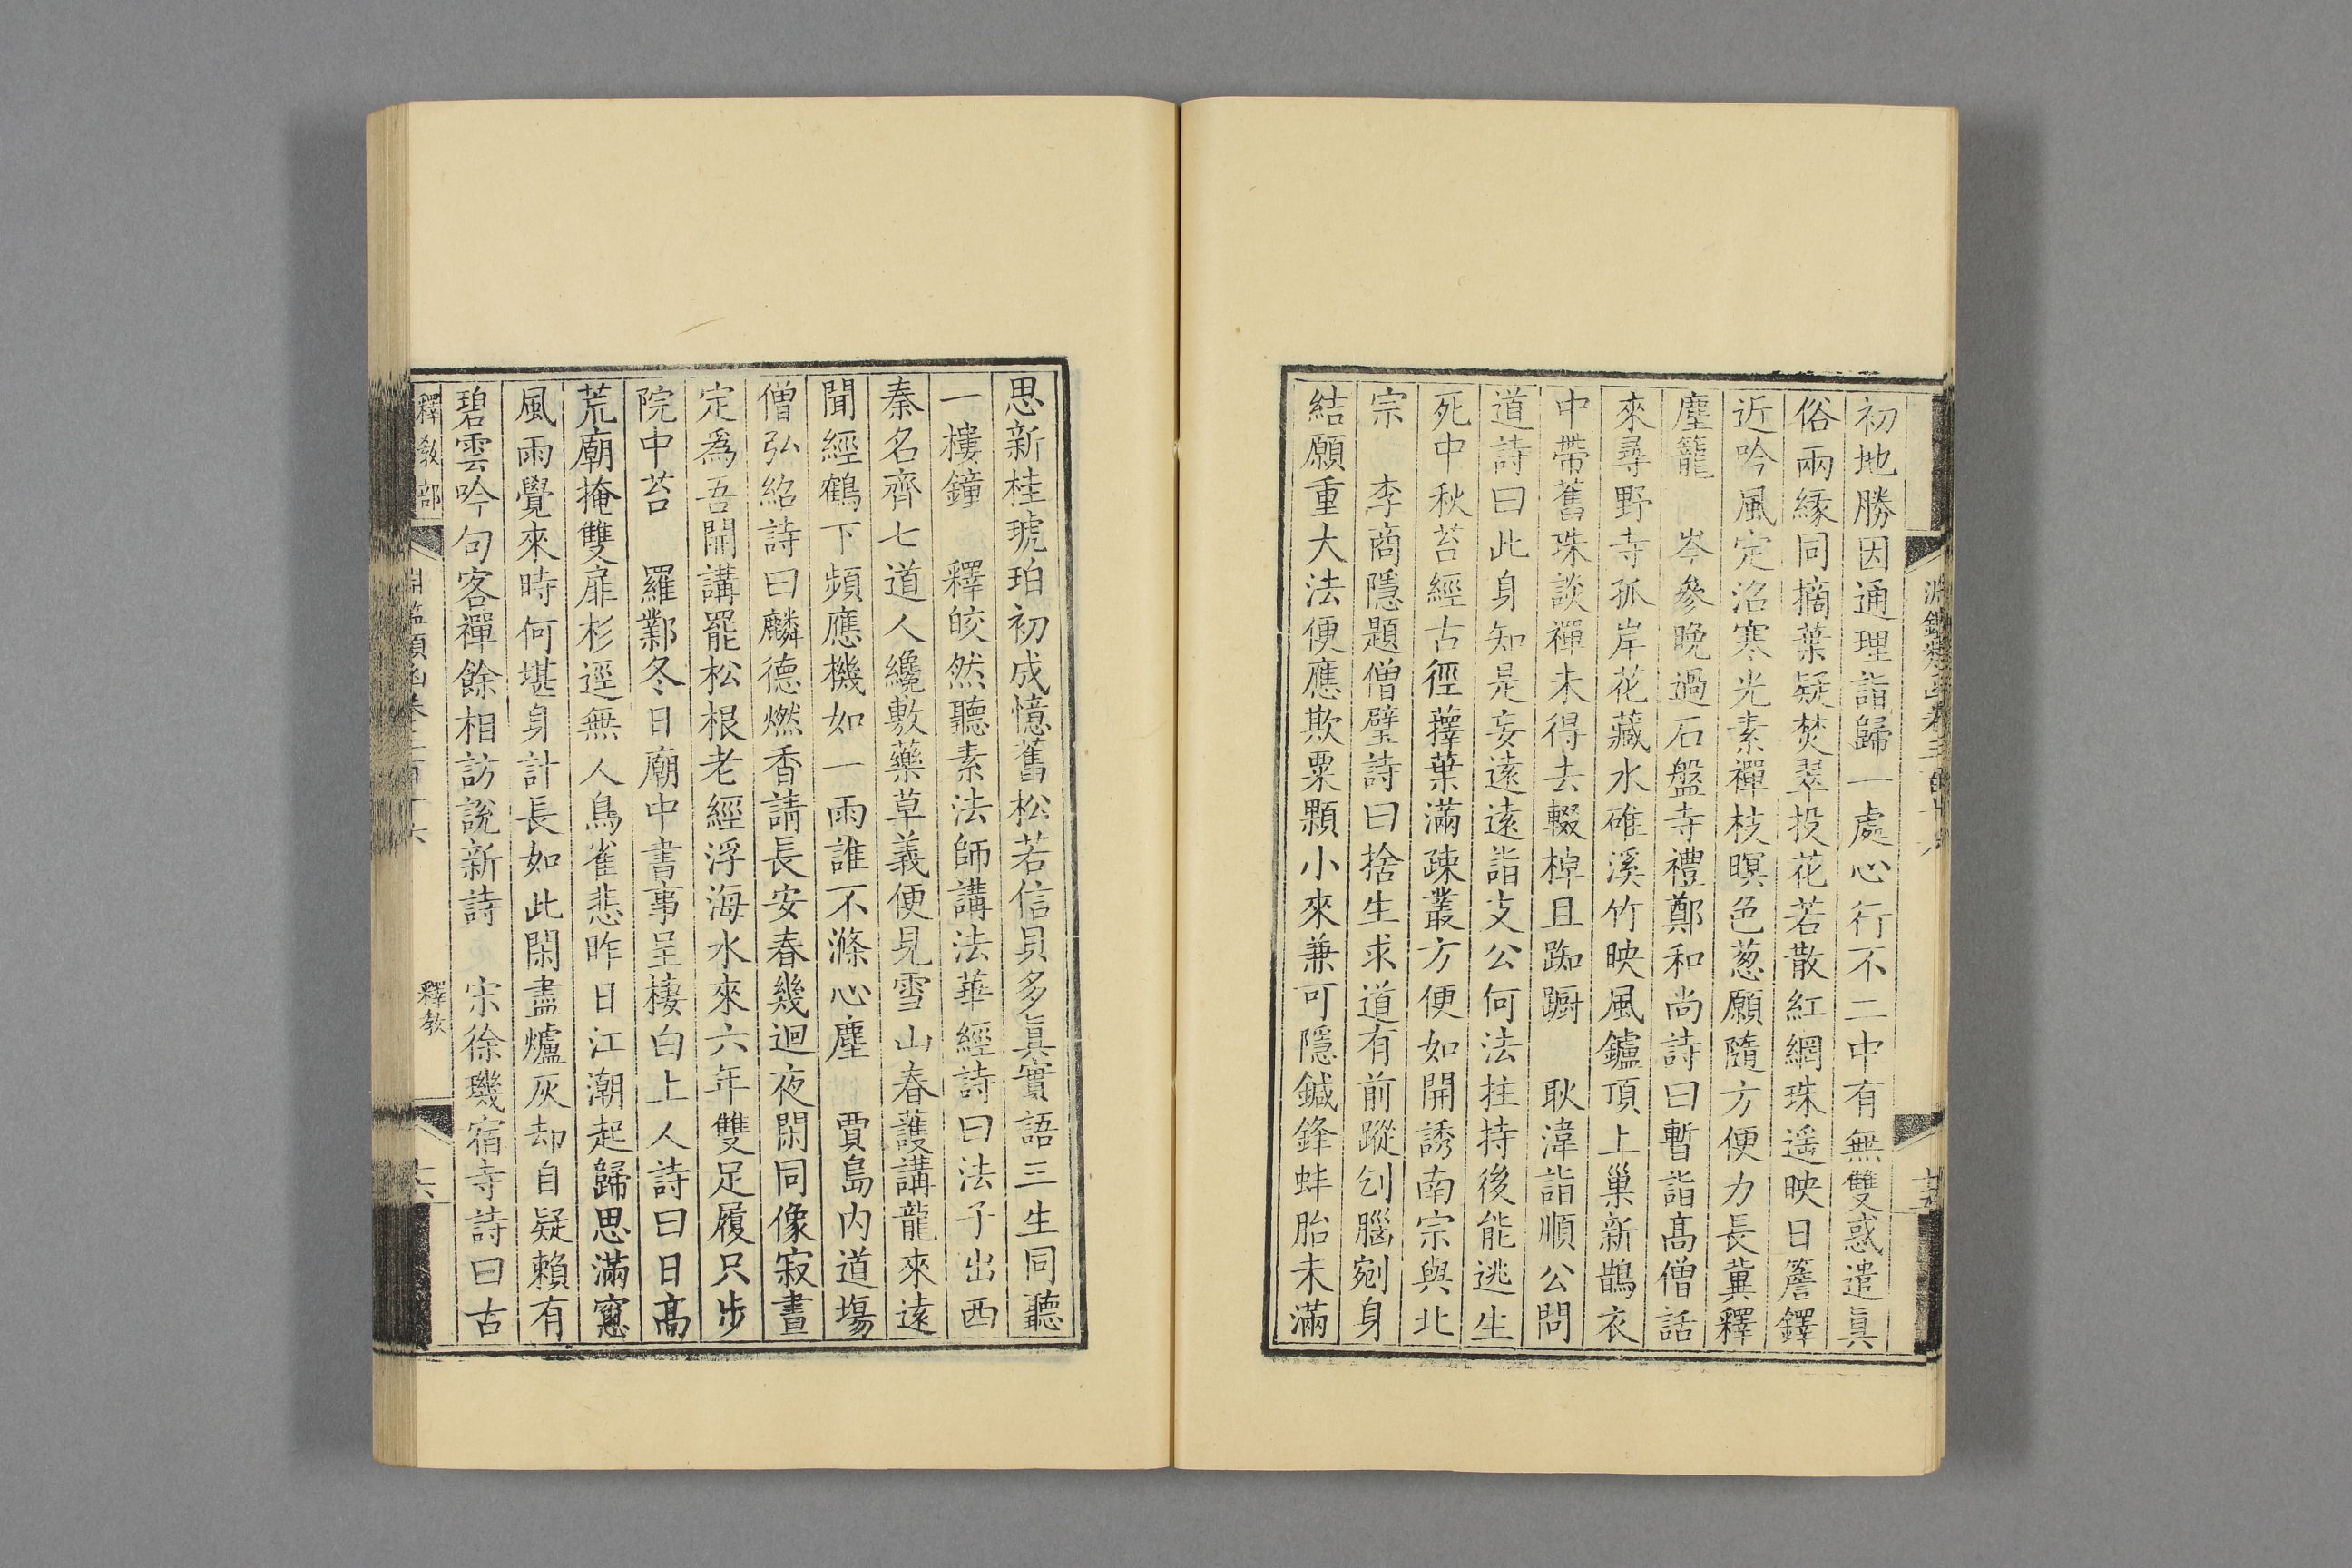 初地勝因通理詣歸一處心行不二中有無雙惑遣眞
俗兩緣同摘葉疑焚翠投花若散紅網珠遥映日簷鐸
近吟風定沼寒光素禪枝暝色葱願隨方便力長冀釋
塵籠　岑參晚過石盤寺禮鄭和尚詩曰暫詣高僧話
來尋野寺孤岸花藏水碓溪竹映風鑪頂上巢新鵲衣
中帶舊珠談禪未得去輟棹且踟蹰　耿湋詣順公問
道詩曰此身知是妄遠遠詣支公何法拄持後能逃生
死中秋苔經古徑蘀葉滿疎叢方便如開誘南宗與北
宗　李商隱題僧壁詩曰捨生求道有前蹤刳腦剜身
結願重大法便應欺粟顆小來兼可隱鍼鋒蚌胎未滿
思新桂琥珀初成憶舊松若信貝多眞實語三生同聽
一樓鐘　釋皎然聽素法師講法華經詩曰法子出西
秦名齊七道人纔敷藥草義便見雪山春護講龍來遠
聞經鶴下頻應機如一雨誰不滌心塵　賈島内道塲
僧弘紹詩曰麟德燃香請長安春幾迴夜閑同像寂晝
定爲吾開講罷松根老經浮海水來六年雙足履只步
院中苔　羅鄴冬日廟中書事呈棲白上人詩曰日高
荒廟掩雙扉杉逕無人鳥雀悲昨日江潮起歸思滿窻
風雨覺來時何堪身計長如此閑盡爐灰却自疑賴有
碧雲吟句客禪餘相訪說新詩　宋徐璣宿寺詩曰古
釋敎部
釋敎